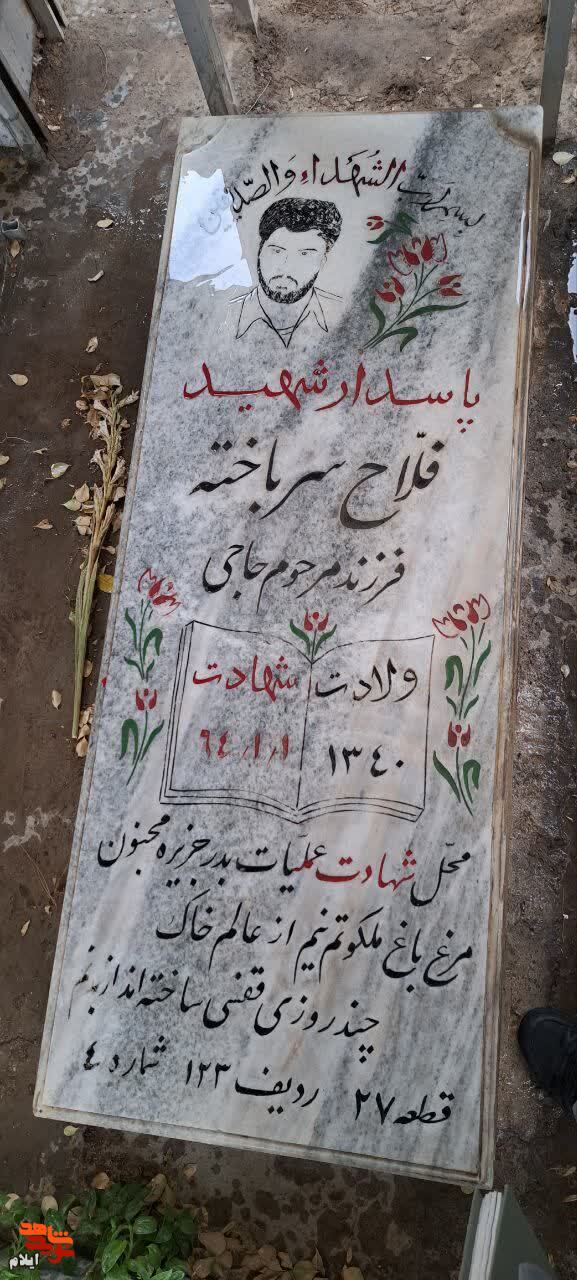 بسم رب الشهداء والصدیقین
پاسدار شهید
فلّاح سرباخته
فرزند مرحوم حاجی
ولادت شهادت
۱۳٤۰ ٦٤/۱/۱
محّل شهادت عملّیات بدر جزیره مجنون
مرغ باغ ملکوتم نیم از عالم خاک
چند روزی قفسی ساخته اند از بدنم
قطعه ۲۷ ردیف ۱۲۳ شماره ٤
نوید شاهد
ایلام